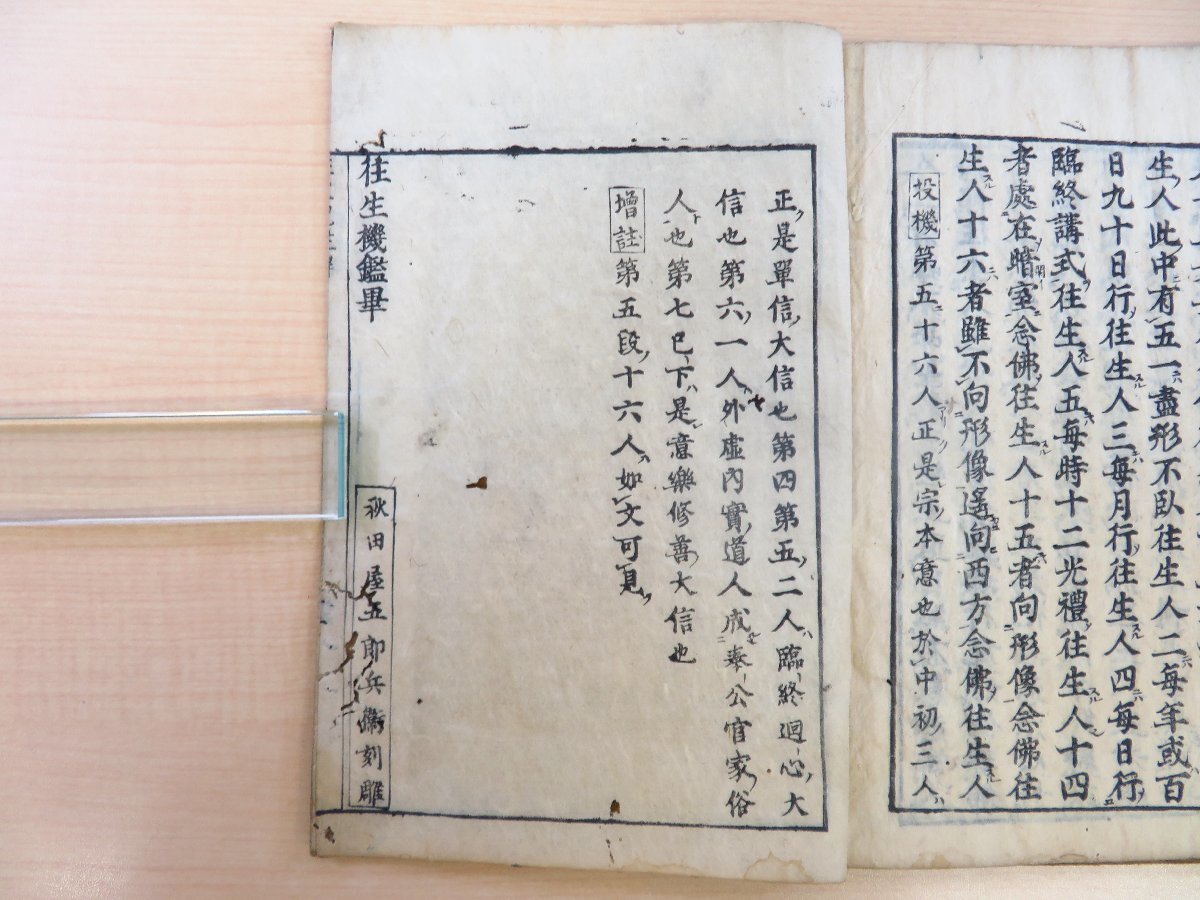 生人此中有五一盡形不臥往生人二每年或百
日九十日行往生人三每月行往生人四每日行
臨終講式往生人五每時十二光禮往生人十四
者處在暗室念佛往生人十五者向形像念佛往
生人十六者雖不向形像遙向西方念佛往生人
投機第五十六人正是宗本意也於中初三人
正是單信大信也第四第五二人臨終迴心大
信也第六一人外虛內實道人或奉公官家俗
人也第七已下是意樂修善大信也
增註第五段十六人如文可見
往生機鑑畢
秋田屋五郎兵衛刻雕